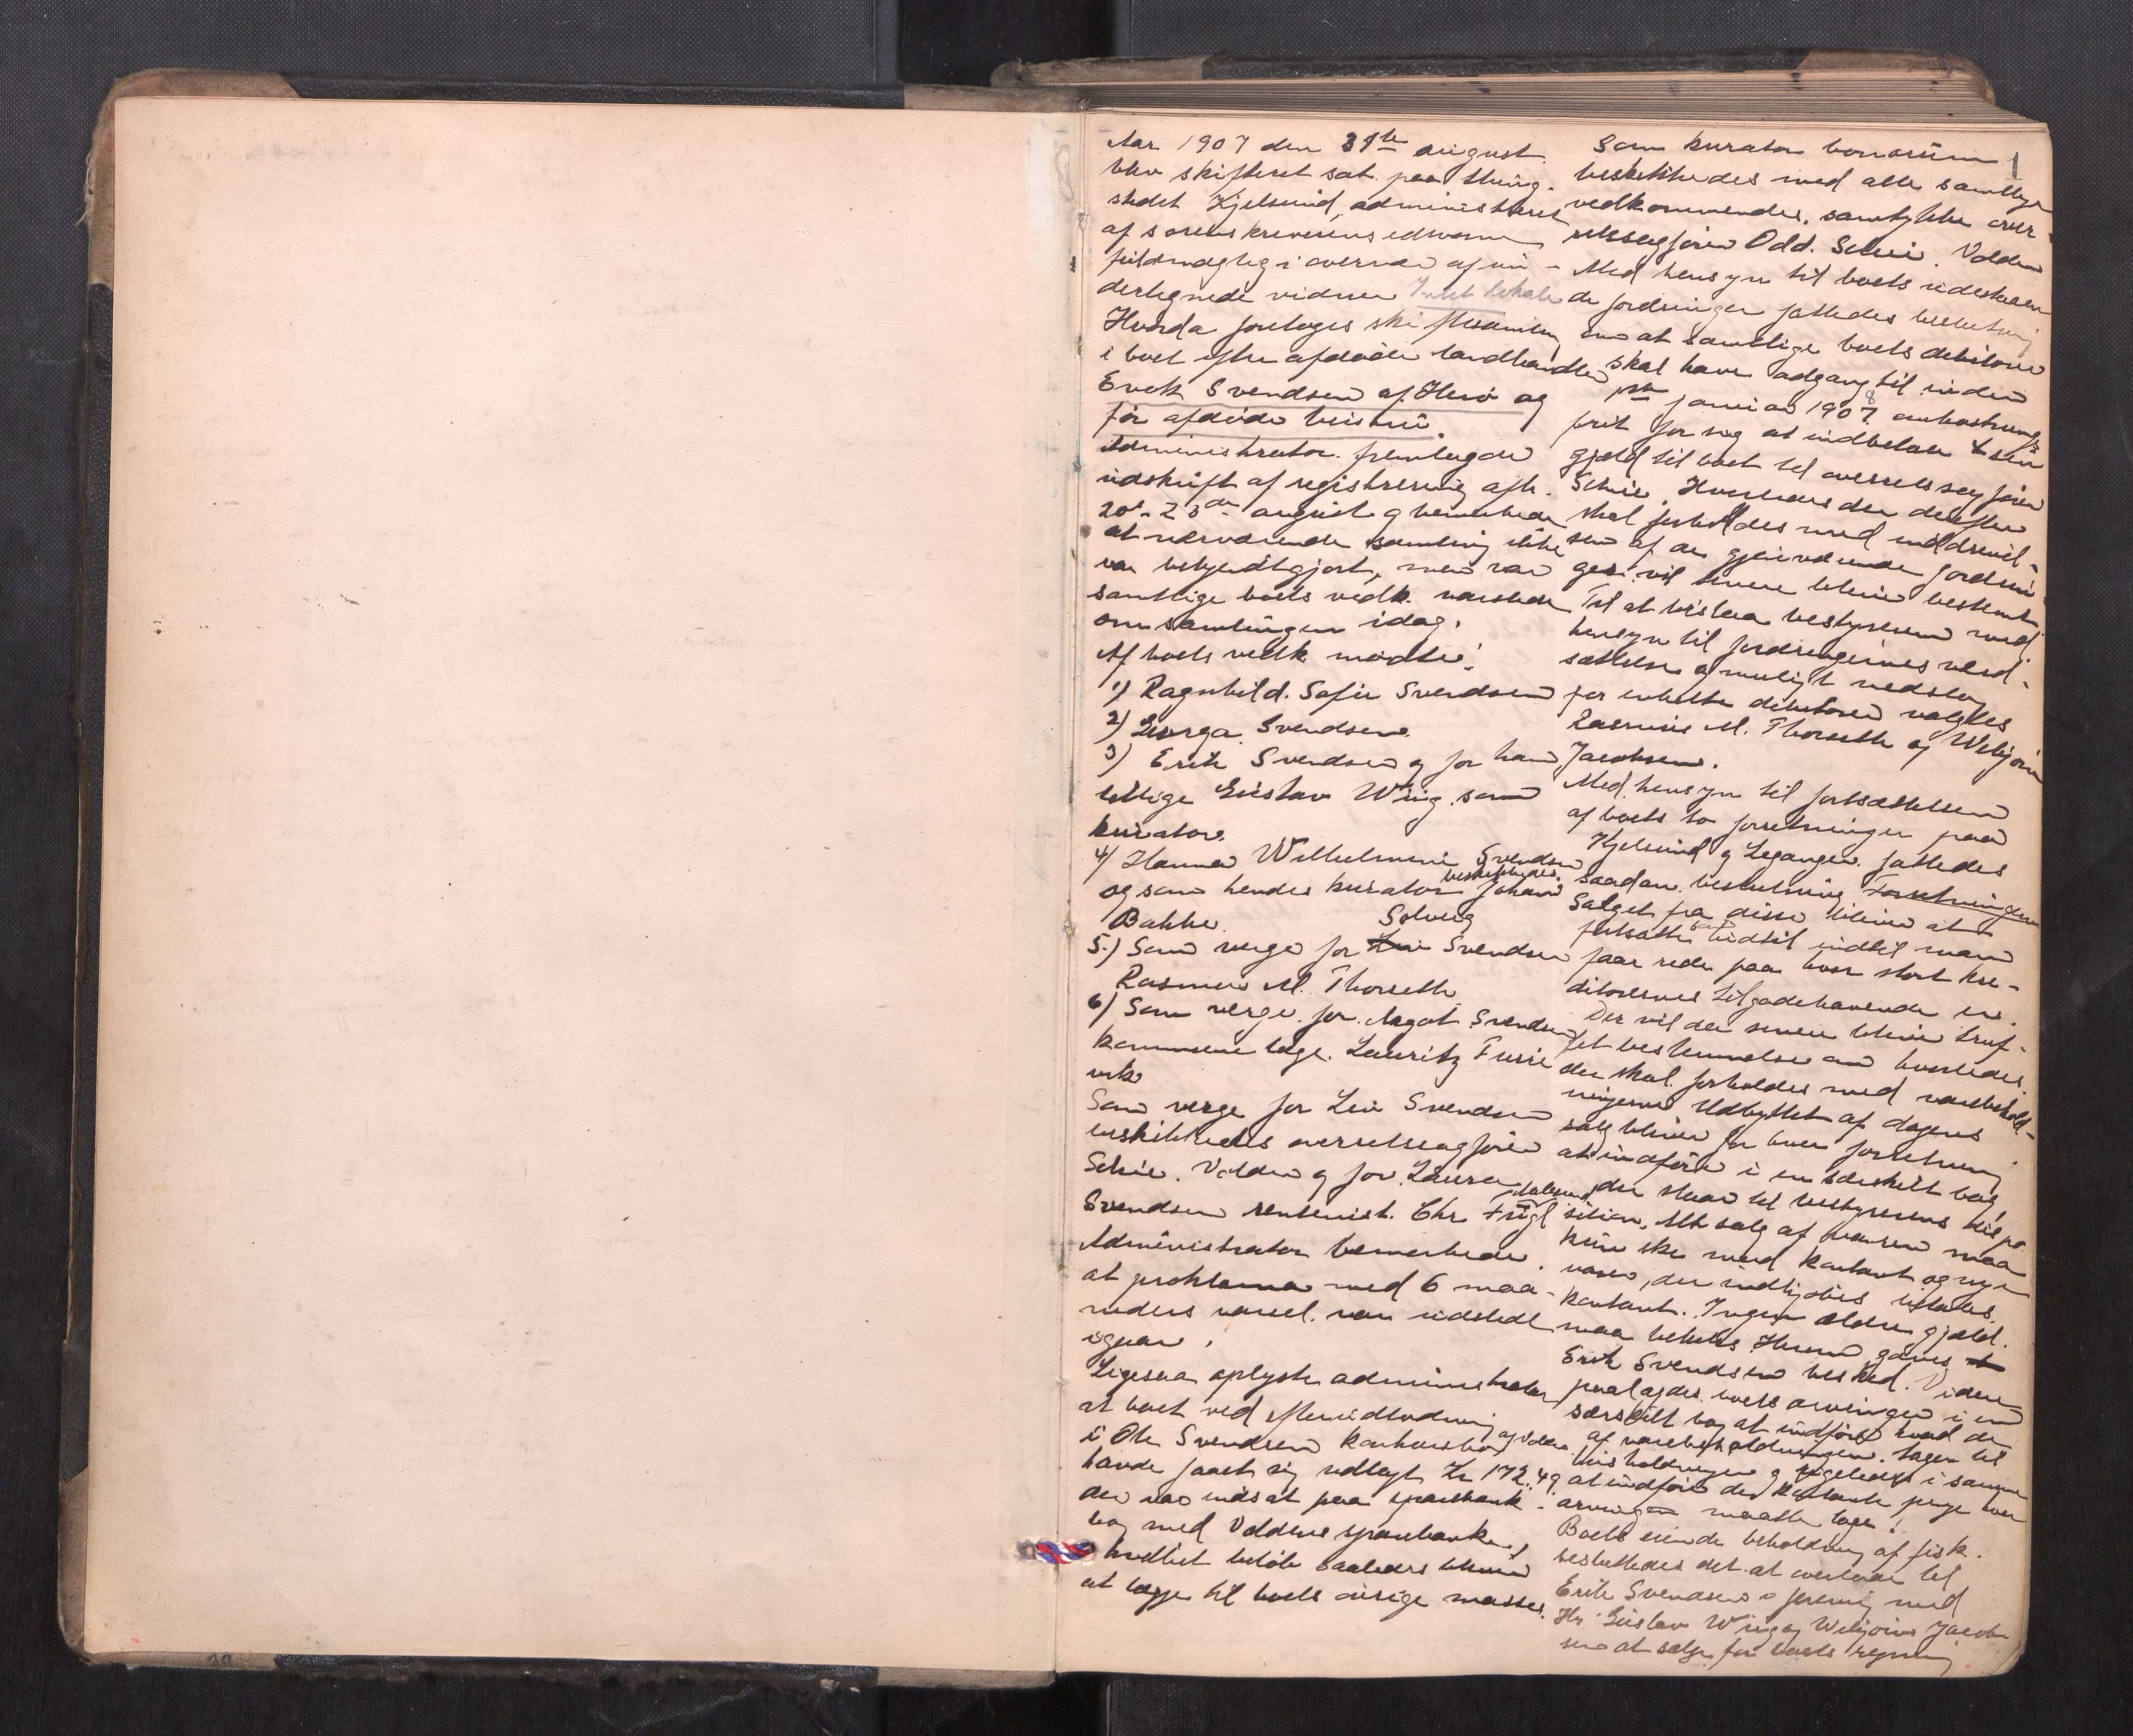 1
Aar 1907 den 31te august
blev skifteret sat paa thing-
stedet Kjelsund, administreret
af sorenskriverens edsvorne
fuldmægtig i overvær af un-
dertegnede vidner
Hvorda foretoges skiftesamling
i boet efter afdøde landhandler
Evek Svendsen af Herø og
før afdøde hustru.
Administrator fremlagde
udskrift af registrering afh.
20de - 23de august og bemerkede
at nærværende samling ikke
var bekjendtgjort, men var
samtlige boets vedk. varslede
om samlingen idag.
Af boets vedk. mødte:
1) Ragnhild Sofie Svendsen
2) Georga Svendsen.
3) Erik Svendsen og for ham
tillige Gustav Wiig som
kurator.
4) Hanna Wilhelmine Svendsen
og som hendes kurator beskikkedes Johan
Bakke.
5.) Som verge for Solveig Svendsen
Rasmus M. Thorseth
6) Som verge for Aagot Svendsen
kommunelæge Lauritz Furre
vik
Som verge for Leiv Svendsen
beskikkedes overretssagfører
Scheie. Volden og for Laura
Svendsen rentenist Chr. Fugl
Administrator bemerkede
at proklama med 6 maa-
neders varsel var udstedt
igaar.
Ligesaa oplyste administrator
at boet ved efterudlodning
i Ole Svendsens konkursbo af Volden
havde faaet sig udlagt Kr 172.49
der var indsat paa sparebank-
bog med Voldens sparebank,
hvilket beløb saaledes bliver
at lægge til boets øvrige masse.
Som kurator bonorum
beskikkedes med alle samtlige
vedkommendes samtykke over-
retssagfører Odd. Scheie. Volden
Med hensyn til boets udestaaen
de fordringer fattedes beslutning
om at samtlige boets debitorer
skal have adgang til inden
1ste januar 1908 omkostnings
frit for sig at indbetale sin
gjæld til boet til overretssagfører
Scheie. Hvorledes der derefter
skal forholdes med inddrivel-
sen af de gjenværende fordrin-
ger vil senere blive bestemt
Til at bistaa bestyreren med
hensyn til fordringernes værd-
sættelse og muligt nedslag
for enkelte debitorer valgtes
Rasmus M. Thorseth og Webjørn
Jacobsen.
Med hensyn til fortsættelsen
af boets to forretninger paa
Kjelsund og Leganger fattedes
saadan beslutning Forretningerne
Salget fra disse bliver at
fortsætte indtil man
faar rede paa hvor stort kre-
ditorernes tilgodehavende er.
Der vil der senere blive truf-
fet bestemmelse om hvorledes
der skal forholdes med varebehold-
ningerne Udbyttet af dagens
salg bliver for hver forretning
at indføre i en særskilt bog,
der staar til bestyrerens dispo
sition. Alt salg af varer maa
kun ske mod kontant og nye
varer, der indkjøbes betales
kontant. Ingen ældre gjæld
maa betales Herom gaves
Erik Svendsen besked. Videre
paalagdes boets arvinger i en
særskilt bog at indføre hvad de
af varebeholdningen tager til
husholdningen og ligeledes i samme
at indføre de kontante penge hver
arving maatte tage.
Boets eiende beholdning af fisk
besluttedes det at overlade til
Erik Svendsen i forening med
Hr Gustav Wiig og Webjørn Jacob
sen at sælge for boets regning